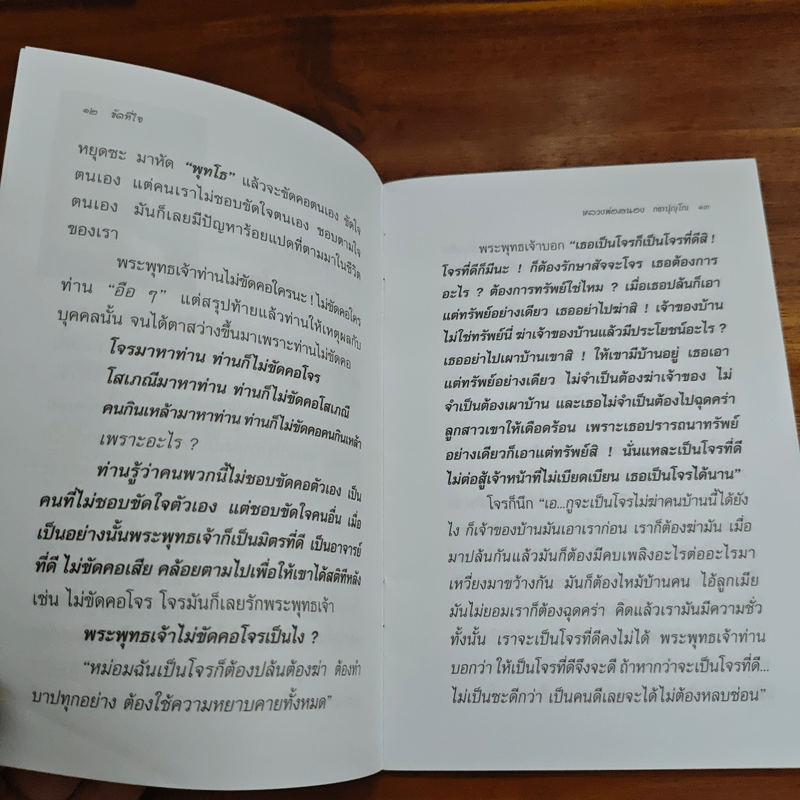 ๑๒ ขัดที่ใจ
หยุดซะ มาหัด “พุทโธ” แล้วจะขัดคอตนเอง ขัดใจ
ตนเอง แต่คนเราไม่ชอบขัดใจตนเอง ชอบตามใจ
ตนเอง มันก็เลยมีปัญหาร้อยแปดที่ตามมาในชีวิต
ของเรา
พระพุทธเจ้าท่านไม่ขัดคอใครนะ! ไม่ขัดคอใคร
ท่าน “อือ ๆ” แต่สรุปท้ายแล้วท่านให้เหตุผลกับ
บุคคลนั้น จนได้ตาสว่างขึ้นมาเพราะท่านไม่ขัดคอ
โจรมาหาท่าน ท่านก็ไม่ขัดคอโจร
โสเภณีมาหาท่าน ท่านก็ไม่ขัดคอโสเภณี
คนกินเหล้ามาหาท่าน ท่านก็ไม่ขัดคอคนกินเหล้า
เพราะอะไร ?
ท่านรู้ว่าคนพวกนี้ไม่ชอบขัดคอตัวเอง เป็น
คนที่ไม่ชอบขัดใจตัวเอง แต่ชอบขัดใจคนอื่น เมื่อ
เป็นอย่างนั้นพระพุทธเจ้าก็เป็นมิตรที่ดี เป็นอาจารย์
ที่ดี ไม่ขัดคอเสีย คล้อยตามไปเพื่อให้เขาได้สติทีหลัง
เช่น ไม่ขัดคอโจร โจรมันก็เลยรักพระพุทธเจ้า
พระพุทธเจ้าไม่ขัดคอโจรเป็นไง ?
“หม่อมฉันเป็นโจรก็ต้องปล้นต้องฆ่า ต้องทำ
บาปทุกอย่าง ต้องใช้ความหยาบคายทั้งหมด”
หลวงพ่อสนอง กตปุญฺโญ ๑๓
พระพุทธเจ้าบอก “เธอเป็นโจรก็เป็นโจรที่ดีสิ !
โจรที่ดีก็มีนะ ! ก็ต้องรักษาสัจจะโจร เธอต้องการ
อะไร ? ต้องการทรัพย์ใช่ไหม ? เมื่อเธอปล้นก็เอา
แต่ทรัพย์อย่างเดียว เธออย่าไปฆ่าสิ ! เจ้าของบ้าน
ไม่ใช่ทรัพย์นี่ ฆ่าเจ้าของบ้านแล้วมีประโยชน์อะไร ?
เธออย่าไปเผาบ้านเขาสิ ! ให้เขามีบ้านอยู่ เธอเอา
แต่ทรัพย์อย่างเดียว ไม่จำเป็นต้องฆ่าเจ้าของ ไม่
จำเป็นต้องเผาบ้าน และเธอไม่จำเป็นต้องไปฉุดคร่า
ลูกสาวเขาให้เดือดร้อน เพราะเธอปรารถนาทรัพย์
อย่างเดียวก็เอาแต่ทรัพย์สิ ! นั่นแหละเป็นโจรที่ดี
ไม่ต่อสู้เจ้าหน้าที่ไม่เบียดเบียน เธอเป็นโจรได้นาน”
โจรก็นึก “เอ...กูจะเป็นโจรไม่ฆ่าคนบ้านนี้ได้ยัง
ไง ก็เจ้าของบ้านมันเอาเราก่อน เราก็ต้องฆ่ามัน เมื่อ
มาปล้นกันแล้วมันก็ต้องมีคบเพลิงอะไรต่ออะไรมา
เหวี่ยงมาขว้างกัน มันก็ต้องไหม้บ้านคน ไอ้ลูกเมีย
มันไม่ยอมเราก็ต้องฉุดคร่า คิดแล้วเรามันมีความชั่ว
ทั้งนั้น เราจะเป็นโจรที่ดีคงไม่ได้ พระพุทธเจ้าท่าน
บอกว่า ให้เป็นโจรที่ดีจึงจะดี ถ้าหากว่าจะเป็นโจรที่ดี...
ไม่เป็นซะดีกว่า เป็นคนดีเลยจะได้ไม่ต้องหลบซ่อน”